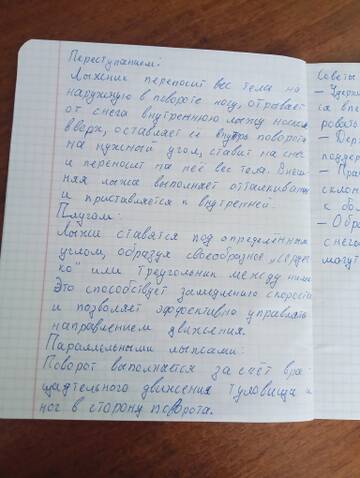 Переступанием:
Лыжник переносит вес тела на
наружную в повороте ногу, отрывает
от снега внутреннюю лыжу носком
вверх, оставляет её внутрь поворота
на нужный угол, ставит на снег
и переносит на неё вес тела. Внеш-
няя лыжа выполняет отталкивание
и приставляется к внутренней.
Плугом:
Лыжи ставятся под определённым
углом, образуя своеобразное „сердеч-
ко" или треугольник между ними.
Это способствует замедлению скорости
и позволяет эффективно управлять
направлением движения.
Параллельными лыжами:
Поворот выполняется за счёт вра-
щадтельного движения туловища и
ног в сторону поворота.
Советы
– Удержи
ся впе
ровать
– Дер
поддер
– Прак
склон
к бол
– Обра
снега
могут